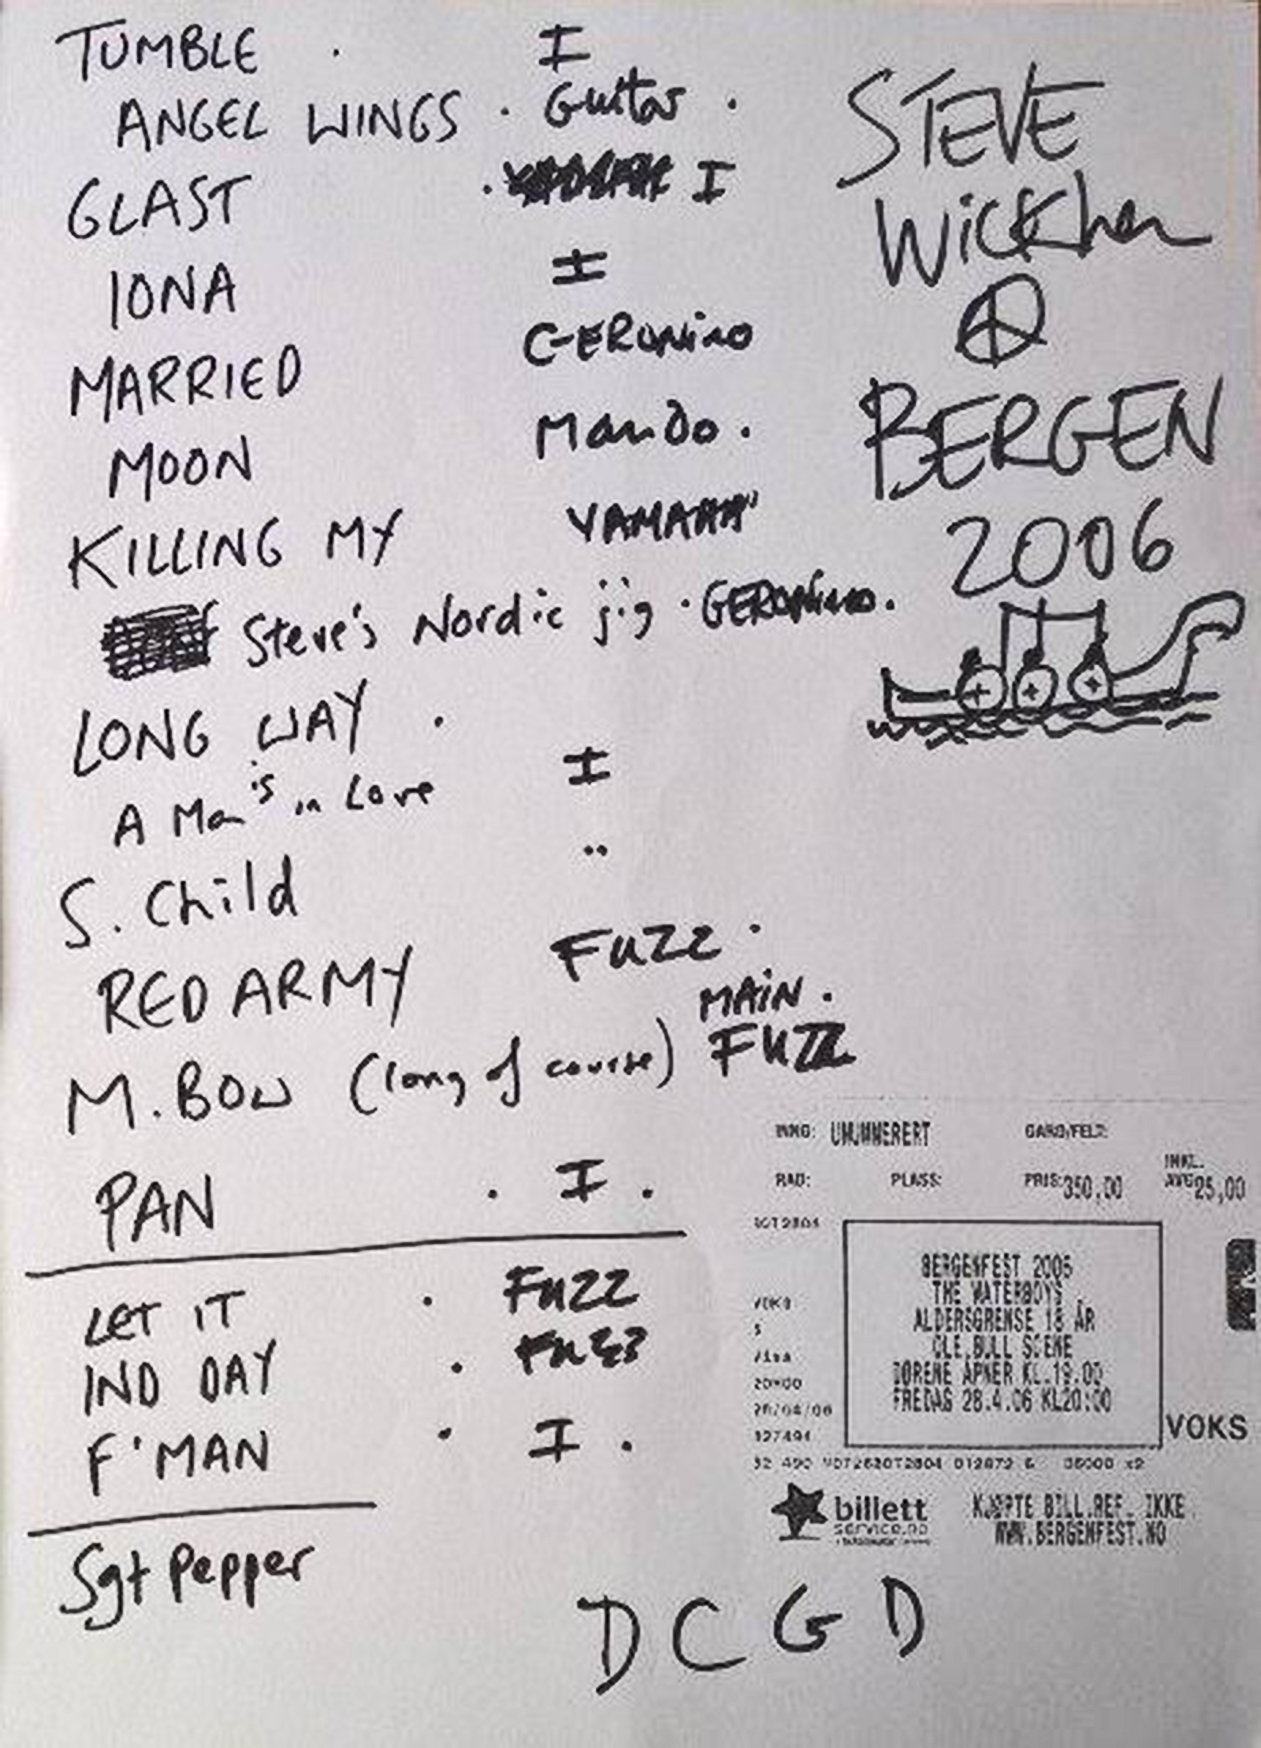 TUMBLE . I
ANGEL WINGS . Guitar .
GLAST . I
IONA I
MARRIED GERONiMO
MOON Mando .
KILLING MY YAMAHA
Steve's Nordic jig . GERONiMO.
LONG WAY .
A Man's in Love I
S. Child "
RED ARMY FUZZ .
MAiN .
M. BOW (long of course) FUZZ
PAN . I .
LET IT . FUZZ
IND DAY . FUZZ
F'MAN . I .
Sgt Pepper
D C G D
STEVE
Wickham
BERGEN
2006
INNG: UNUMMERERT GANG/FELT:
RAD: PLASS: PRIS: 350,00 INKL. AVG 25,00
BERGENFEST 2006
THE WATERBOYS
ALDERSGRENSE 18 ÅR
OLE BULL SCENE
DØRENE ÅPNER KL.19.00
FREDAG 28.4.06 KL20:00
VOKS
Visa
28/04/06
billett
service.no
KJØPTE BILL.REF. IKKE
WWW.BERGENFEST.NO